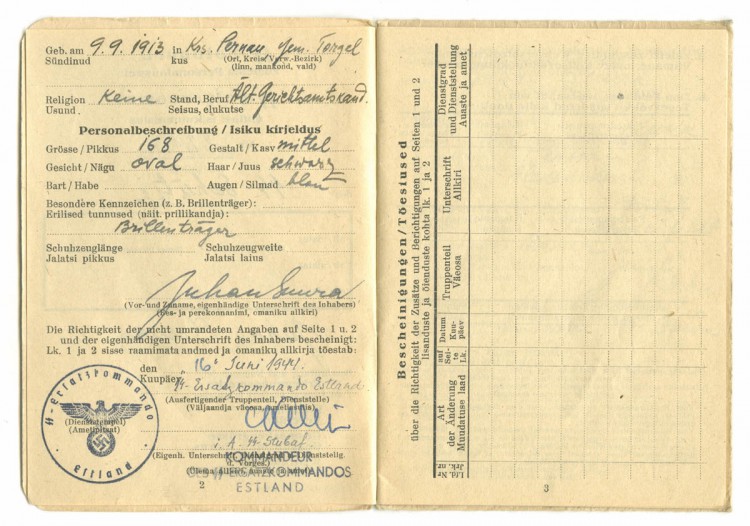 Geb. am 9.9.1913 in Krs. Pernau, Gem. Torgel
Sündinud kus (Ort, Kreis/Verw.-Bezirk)
(linn, maakond, vald)
Religion Keine Stand, Beruf Ält. Gerichtsamtskand.
Usund Seisus, elukutse
Personalbeschreibung / Isiku kirjeldus
Grösse / Pikkus 168 Gestalt / Kasv mittel
Gesicht / Nägu oval Haar / Juus schwarz
Bart / Habe Augen / Silmad blau
Besondere Kennzeichen (z. B. Brillenträger):
Erilised tunnused (näit. prillikandja):
Brillenträger
Schuhzeuglänge Schuhzeugweite
Jalatsi pikkus Jalatsi laius
Juhan
(Vor- und Zuname, eigenhändige Unterschrift des Inhabers)
(Ees- ja perekonnanimi, omaniku allkiri)
Die Richtigkeit der nicht umrandeten Angaben auf Seite 1 u. 2
und der eigenhändigen Unterschrift des Inhabers bescheinigt:
Lk. 1 ja 2 sisse raamimata andmed ja omaniku allkirja tõestab:
den 16. Juni 1944.
Kuupäev
SS-Ersatzkommando Estland
(Ausfertigender Truppenteil, Dienststelle)
(Väljaandja väeosa, ametiasutus)
SS-Ersatzkommando
Estland
(Dienststempel)
(Ametipitsat)
i. A. SS-Stubaf.
(Eigenh. Unterschrift,
d. Vorges.)
KOMMANDEUR
DES SS-ERSATZKOMMANDOS
ESTLAND
2
Bescheinigungen / Tõestused
über die Richtigkeit der Zusätze und Berichtigungen auf Seiten 1 und 2
lisanduste ja õienduste kohta lk. 1 ja 2
Lfd. Nr.
Jrk. nr.
Art
der Änderung
Muudatuse laad
auf
Seite
Lk.
Datum
Kuupäev
Truppenteil
Väeosa
Unterschrift
Allkiri
Dienstgrad
und Dienststellung
Auaste ja amet
3